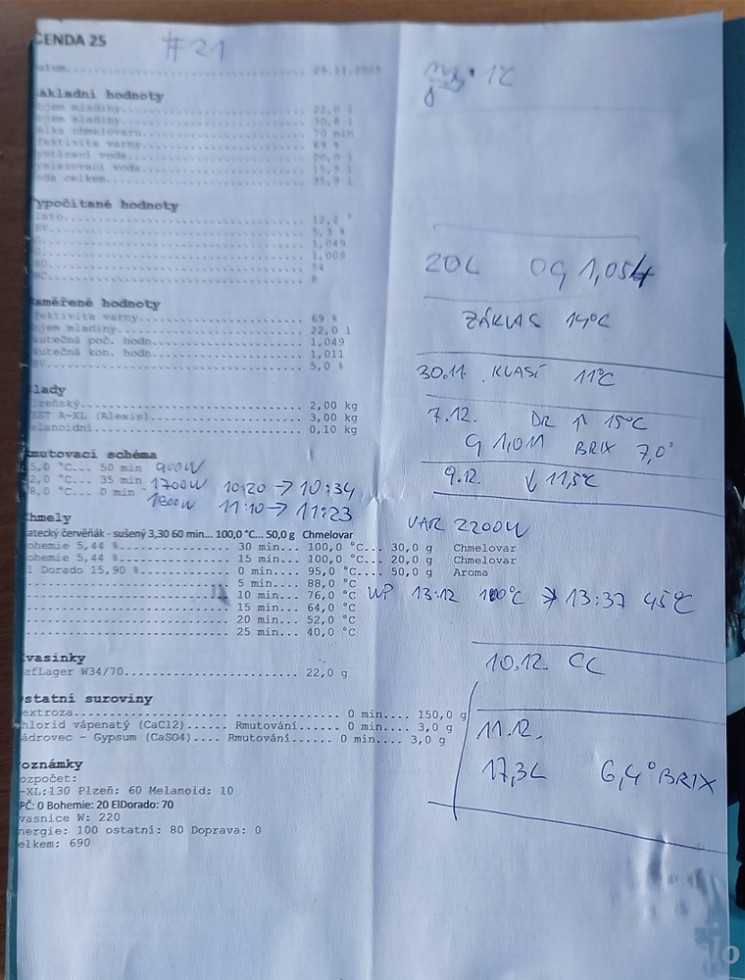 ČENDA 25 #21
atum........................ 29.11.2025
ákladní hodnoty
bjem mladiny........................ 22,0 l
bjem mladiny........................ 30,8 l
élka chmelovaru........................ 70 min
fektivita varny........................ 69 %
ystírací voda........................ 20,0 l
yslazovací voda........................ 15,9 l
oda celkem........................ 35,9 l
ypočítané hodnoty
12,2 °
5,3 %
1,049
1,009
54
8
aměřené hodnoty
fektivita varny........................ 69 %
bjem mladiny........................ 22,0 l
kutečná poč. hodn........................ 1,049
kutečná kon. hodn........................ 1,011
5,0 %
lady
lzeňský........................ 2,00 kg
EST A-XL (Alexis)........................ 3,00 kg
elanoidní........................ 0,10 kg
mutovací schéma
5,0 °C... 50 min 900W
2,0 °C... 35 min 1700W 10:20 → 10:34
8,0 °C... 0 min 1800W 11:10 → 11:23
hmely
atecký červěňák - sušený 3,30 60 min... 100,0 °C... 50,0 g Chmelovar
ohemie 5,44 %........................ 30 min... 100,0 °C... 30,0 g Chmelovar
ohemie 5,44 %........................ 15 min... 100,0 °C... 20,0 g Chmelovar
l Dorado 15,90 %........................ 0 min... 95,0 °C.... 50,0 g Aroma
5 min... 88,0 °C
10 min... 76,0 °C WP 13:12 100°C → 13:37 45°C
15 min... 64,0 °C
20 min... 52,0 °C
25 min... 40,0 °C
vasinky
afLager W34/70........................ 22,0 g
statní suroviny
extroza........................ 0 min.... 150,0 g
hlorid vápenatý (CaCl2)...... Rmutování...... 0 min.... 3,0 g
ádrovec - Gypsum (CaSO4).... Rmutování...... 0 min.... 3,0 g
oznámky
ozpočet:
-XL:130 Plzeň: 60 Melanoid: 10
PČ: 0 Bohemie: 20 ElDorado: 70
vasnice W: 220
nergie: 100 ostatní: 80 Doprava: 0
elkem: 690
1°C
20L OG 1,054
ZÁKLAS 14°C
30.11. KLASÍ 11°C
7.12. DR ↑ 15°C
G 1,011 BRIX 7,0°
9.12. ↓ 11,5°C
VAR 2200W
10.12. CC
11.12.
17,3L 6,4° BRIX